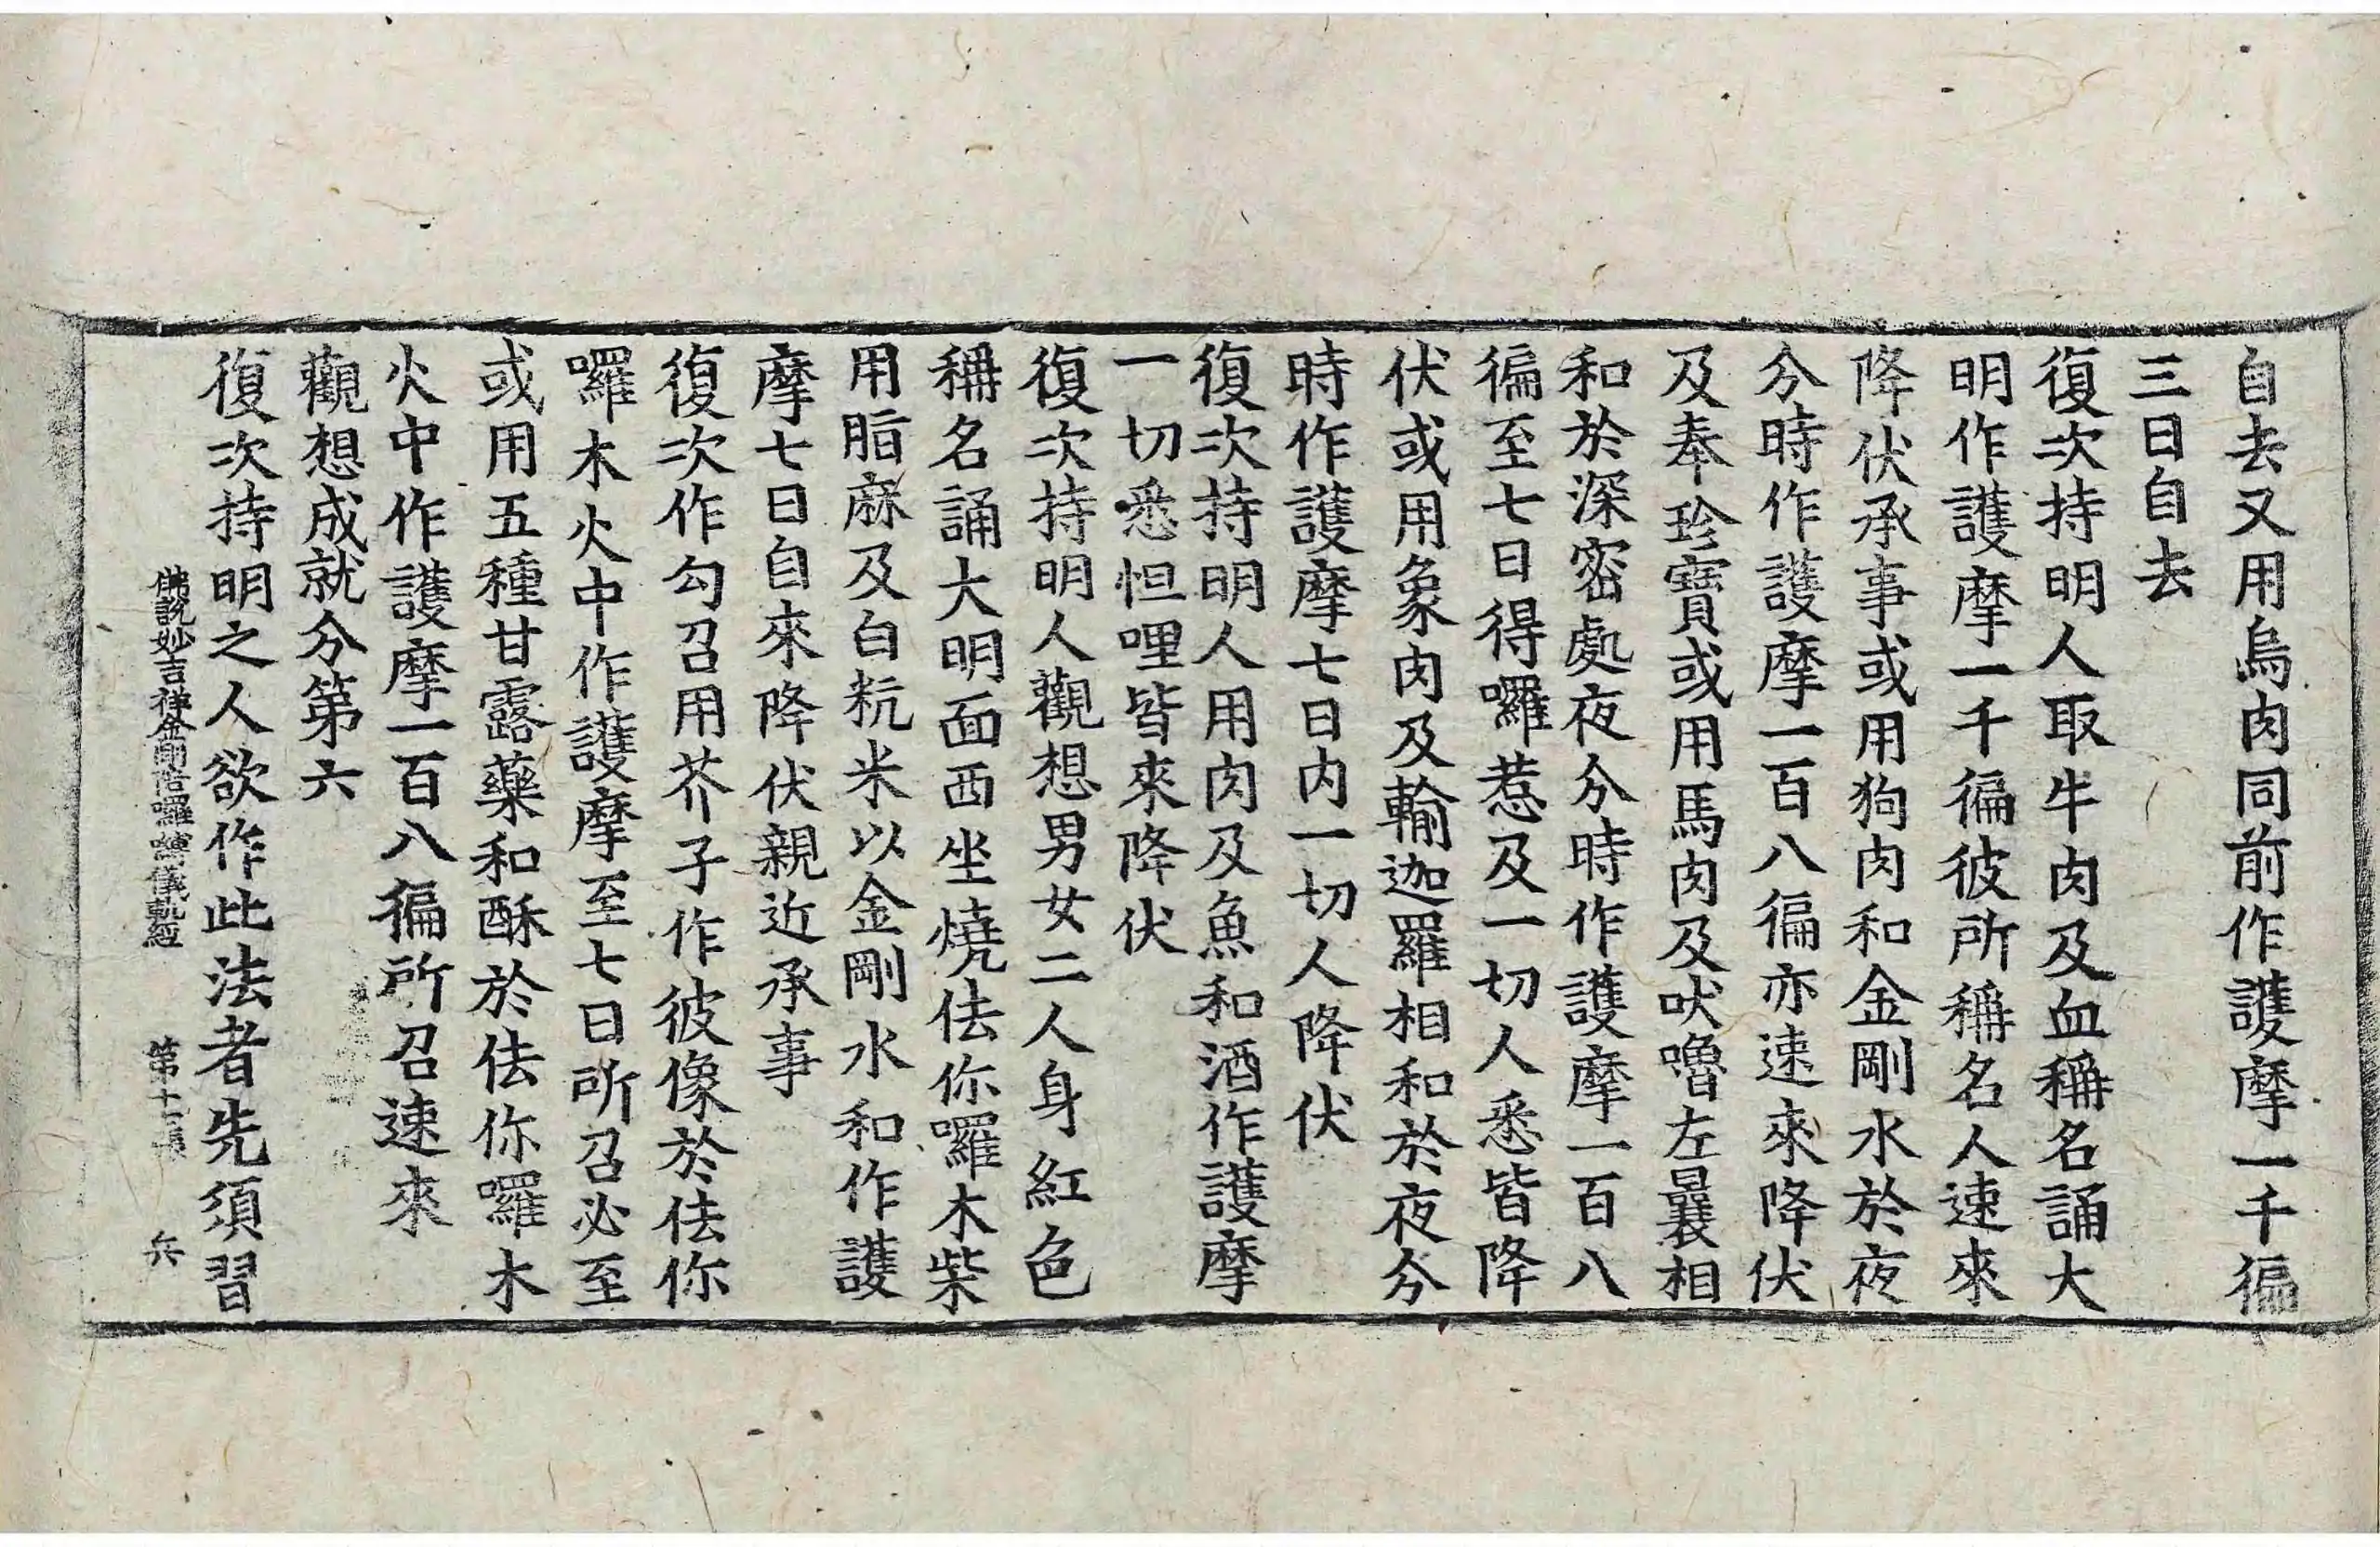 自去又用烏肉同前作護摩一千徧
三日自去
復次持明人取牛肉及血稱名誦大
明作護摩一千徧彼所稱名人速來
降伏承事或用狗肉和金剛水於夜
分時作護摩一百八徧亦速來降伏
及奉珍寶或用馬肉及吠嚕左曩相
和於深密處夜分時作護摩一百八
徧至七日得囉惹及一切人悉皆降
伏或用象肉及輸迦羅相和於夜分
時作護摩七日內一切人降伏
復次持明人用肉及魚和酒作護摩
一切悉怛哩皆來降伏
復次持明人觀想男女二人身紅色
稱名誦大明面西坐燒佉你囉木柴
用脂麻及白粇米以金剛水和作護
摩七日自來降伏親近承事
復次作勾召用芥子作彼像於佉你
囉木火中作護摩至七日所召必至
或用五種甘露藥和酥於佉你囉木
火中作護摩一百八徧所召速來
觀想成就分第六
復次持明之人欲作此法者先須習
佛說妙吉祥金剛陪囉嚩儀軌經 第十二張 兵